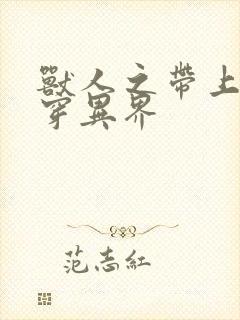 獸人之帶上
穿異界
范志紅